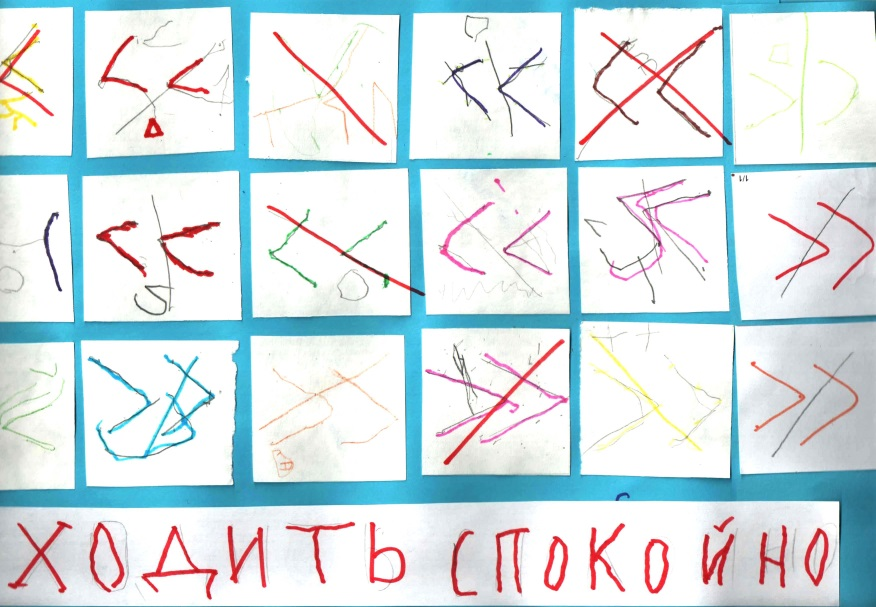 ХОДИТЬ СПОКОЙНО